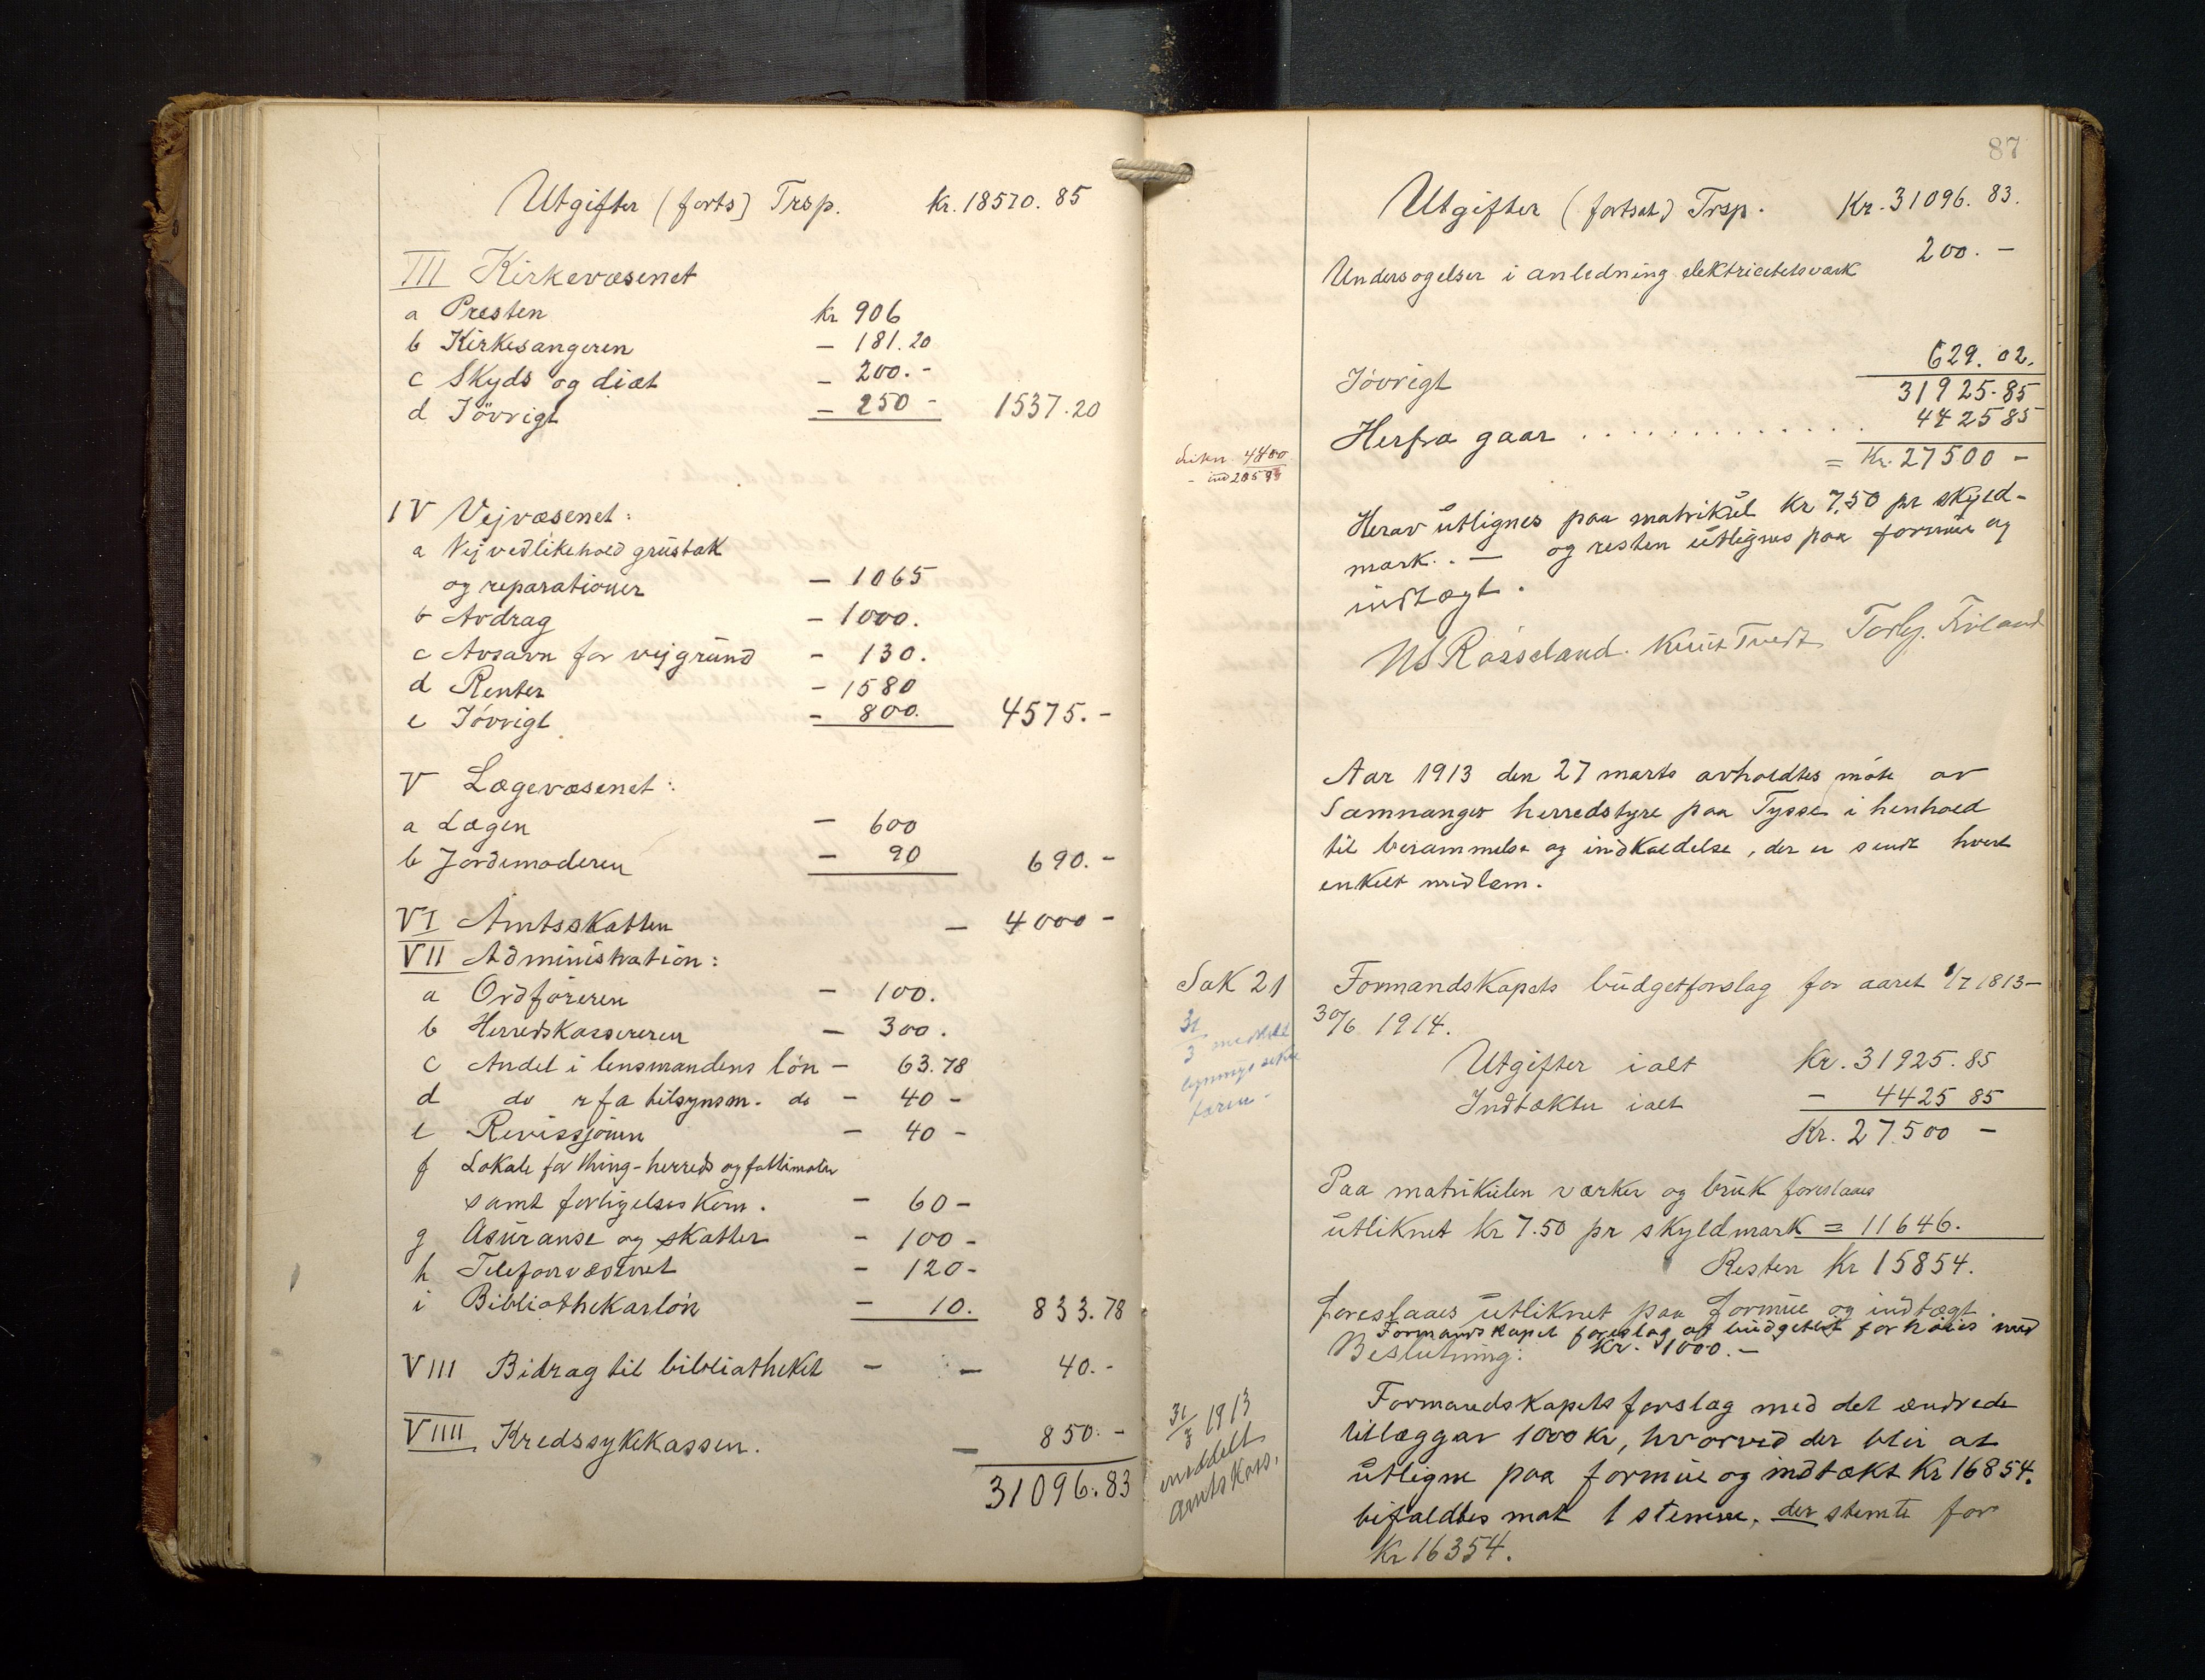 Utgifter (forts) Trsp. kr. 18570. 85
III Kirkevæsenet
a Presten kr 906
b Kirkesangeren — 181.20
c Skyds og diæt — 200.-
d Iövrigt — 250 - 1537.20
IV Veivæsenet:
a Veivedlikehold grustak
og reparationer — 1065
b Avdrag — 1000.
c Avsavn for vejgrund — 130.
d Renter — 1580
e Iövrigt — 800. 4575.-
V Lægevæsenet:
a Lægen — 600
b Jordemoderen — 90 690.-
VI Amtsskatten — 4000 -
VII Administration:
a Ordföreren — 100.
b Herredskassereren — 300.
c Andel i lensmandens lön — 63.78
d do r f a tilsynsm. do — 40 -
e Revissjonen — 40 -
f Lokale for thing-herreds og fattimøter
samt forligelseskom. — 60 -
g Asuranse og skatter — 100 -
h Telefonvæsenet — 120 -
i Bibliothekarlön — 10. 833.78
VIII Bidrag til bibliatheket — — 40.-
VIIII Kredssykekassen. — 850.-
31096.83
87
Utgifter (fortsat) Trsp. Kr. 31096. 83.
Undersøgelser i anledning elektricitetsværk 200.-
Iövrigt 629. 02.
31925.85
Herfra gaar . . . . . . . . . . . . . 4425 85
= Kr. 27500 -
Herav utlignes paa matrikul kr 7,50 pr skyld-
mark. - og resten utlignes paa formue og
indtægt.
NS Røsseland. Knut Tvedt
Aar 1913 den 27 marts avholdtes möte av
Samnanger herredstyre paa Tysse i henhold
til berammelse og indkaldelse, der er sendt hvert
enkelt medlem.
Sak 21 Formandskapets budgetforslag for aaret 1/7 1813-
30/6 1914.
31/3 meddelt
Utgifter ialt Kr. 31925. 85
Indtækter ialt - 4425 85
Kr. 27.500 -
Paa matrikulen værker og bruk foreslaaes
utliknet kr 7.50 pr skyldmark = 11646.
Resten Kr 15854.
foreslaaes utliknet paa formue og indtægt.
Formandskapet foreslog at budgettet forhøies med
Beslutning: Kr. 1000.-
31/3 1913
meddelt
Amtskass.
Formandskapets forslag med det ændrede
tillæg av 1000 kr, hvorved der blir at
utligne paa formue og indtækt Kr 16854.
bifaldtes mot 1 stemme, der stemte for
Kr 16354.